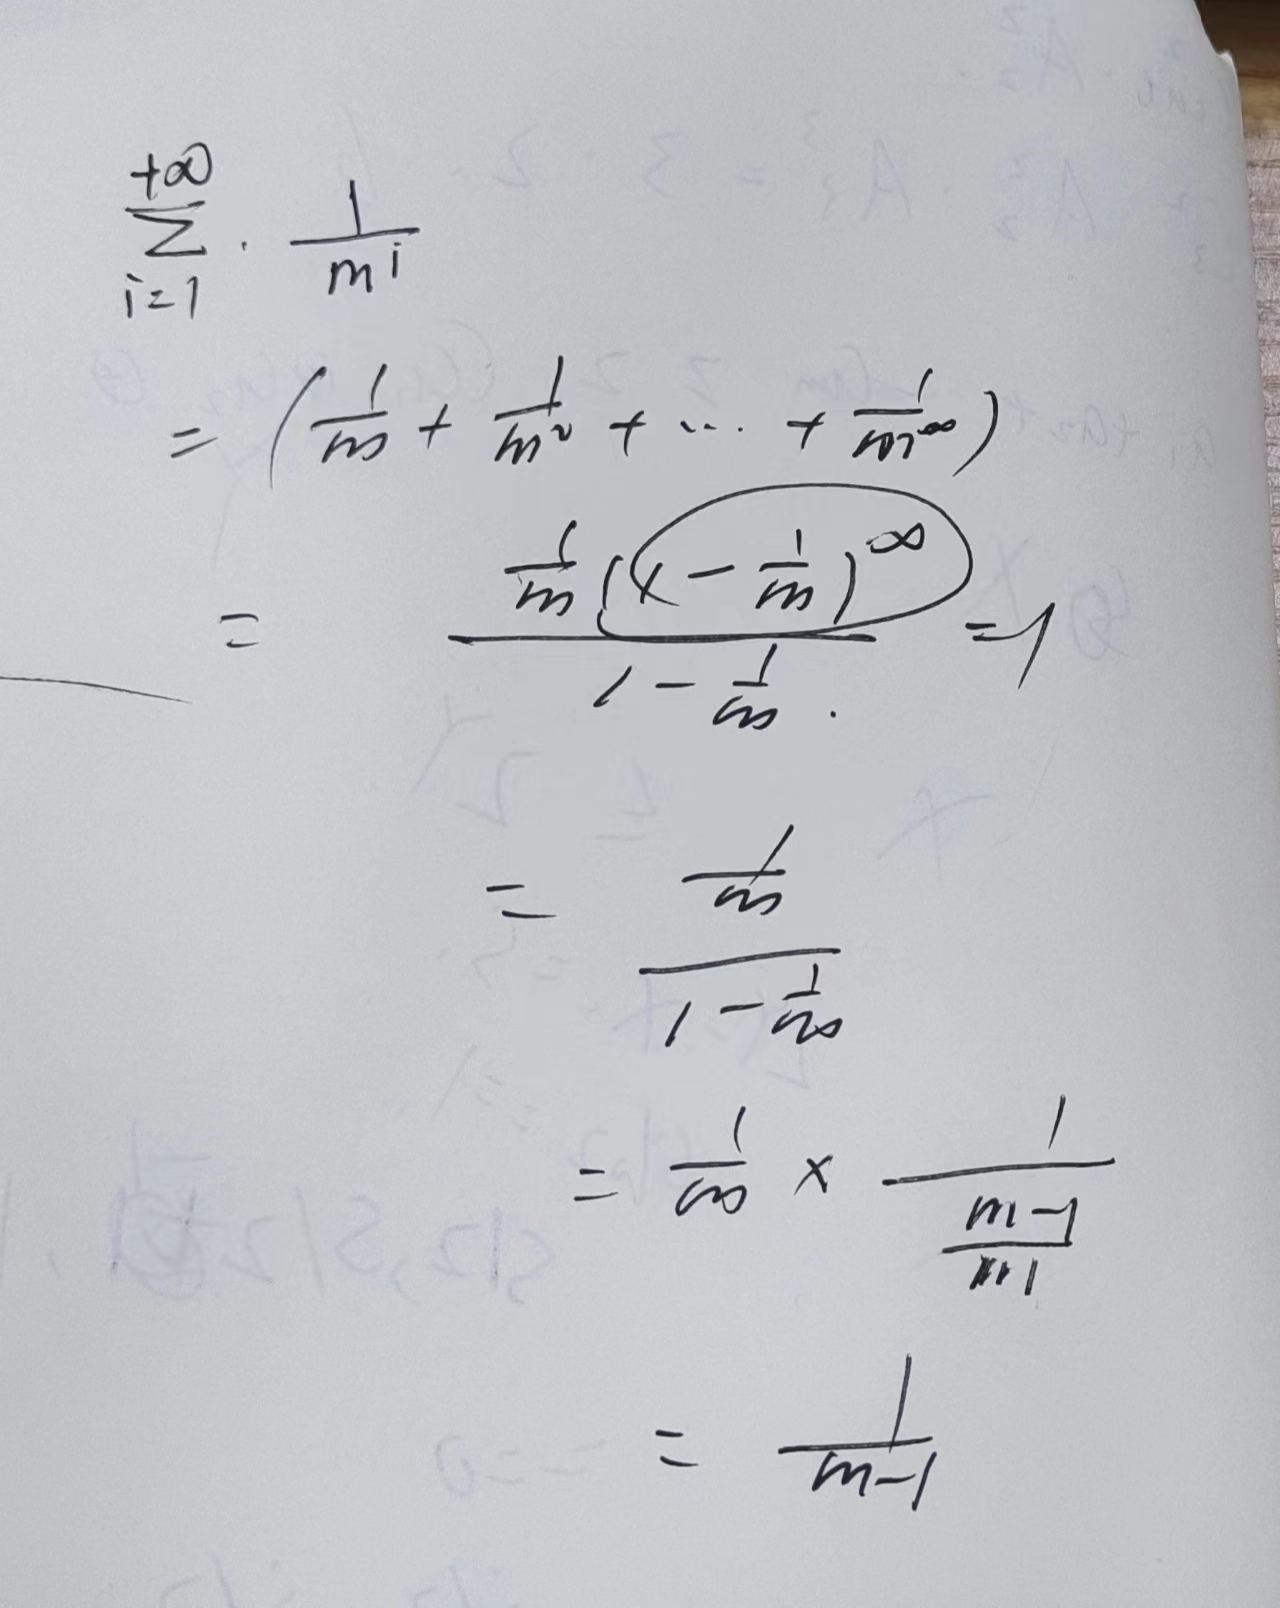 +∞
∑ · 1/m^i
i=1
= (1/m + 1/m² + ... + 1/m^∞)
= (1/m (x - 1/m)^∞) / (1 - 1/m) . =1
= (1/m) / (1 - 1/m)
= 1/m × 1/((m-1)/m)
= 1/(m-1)